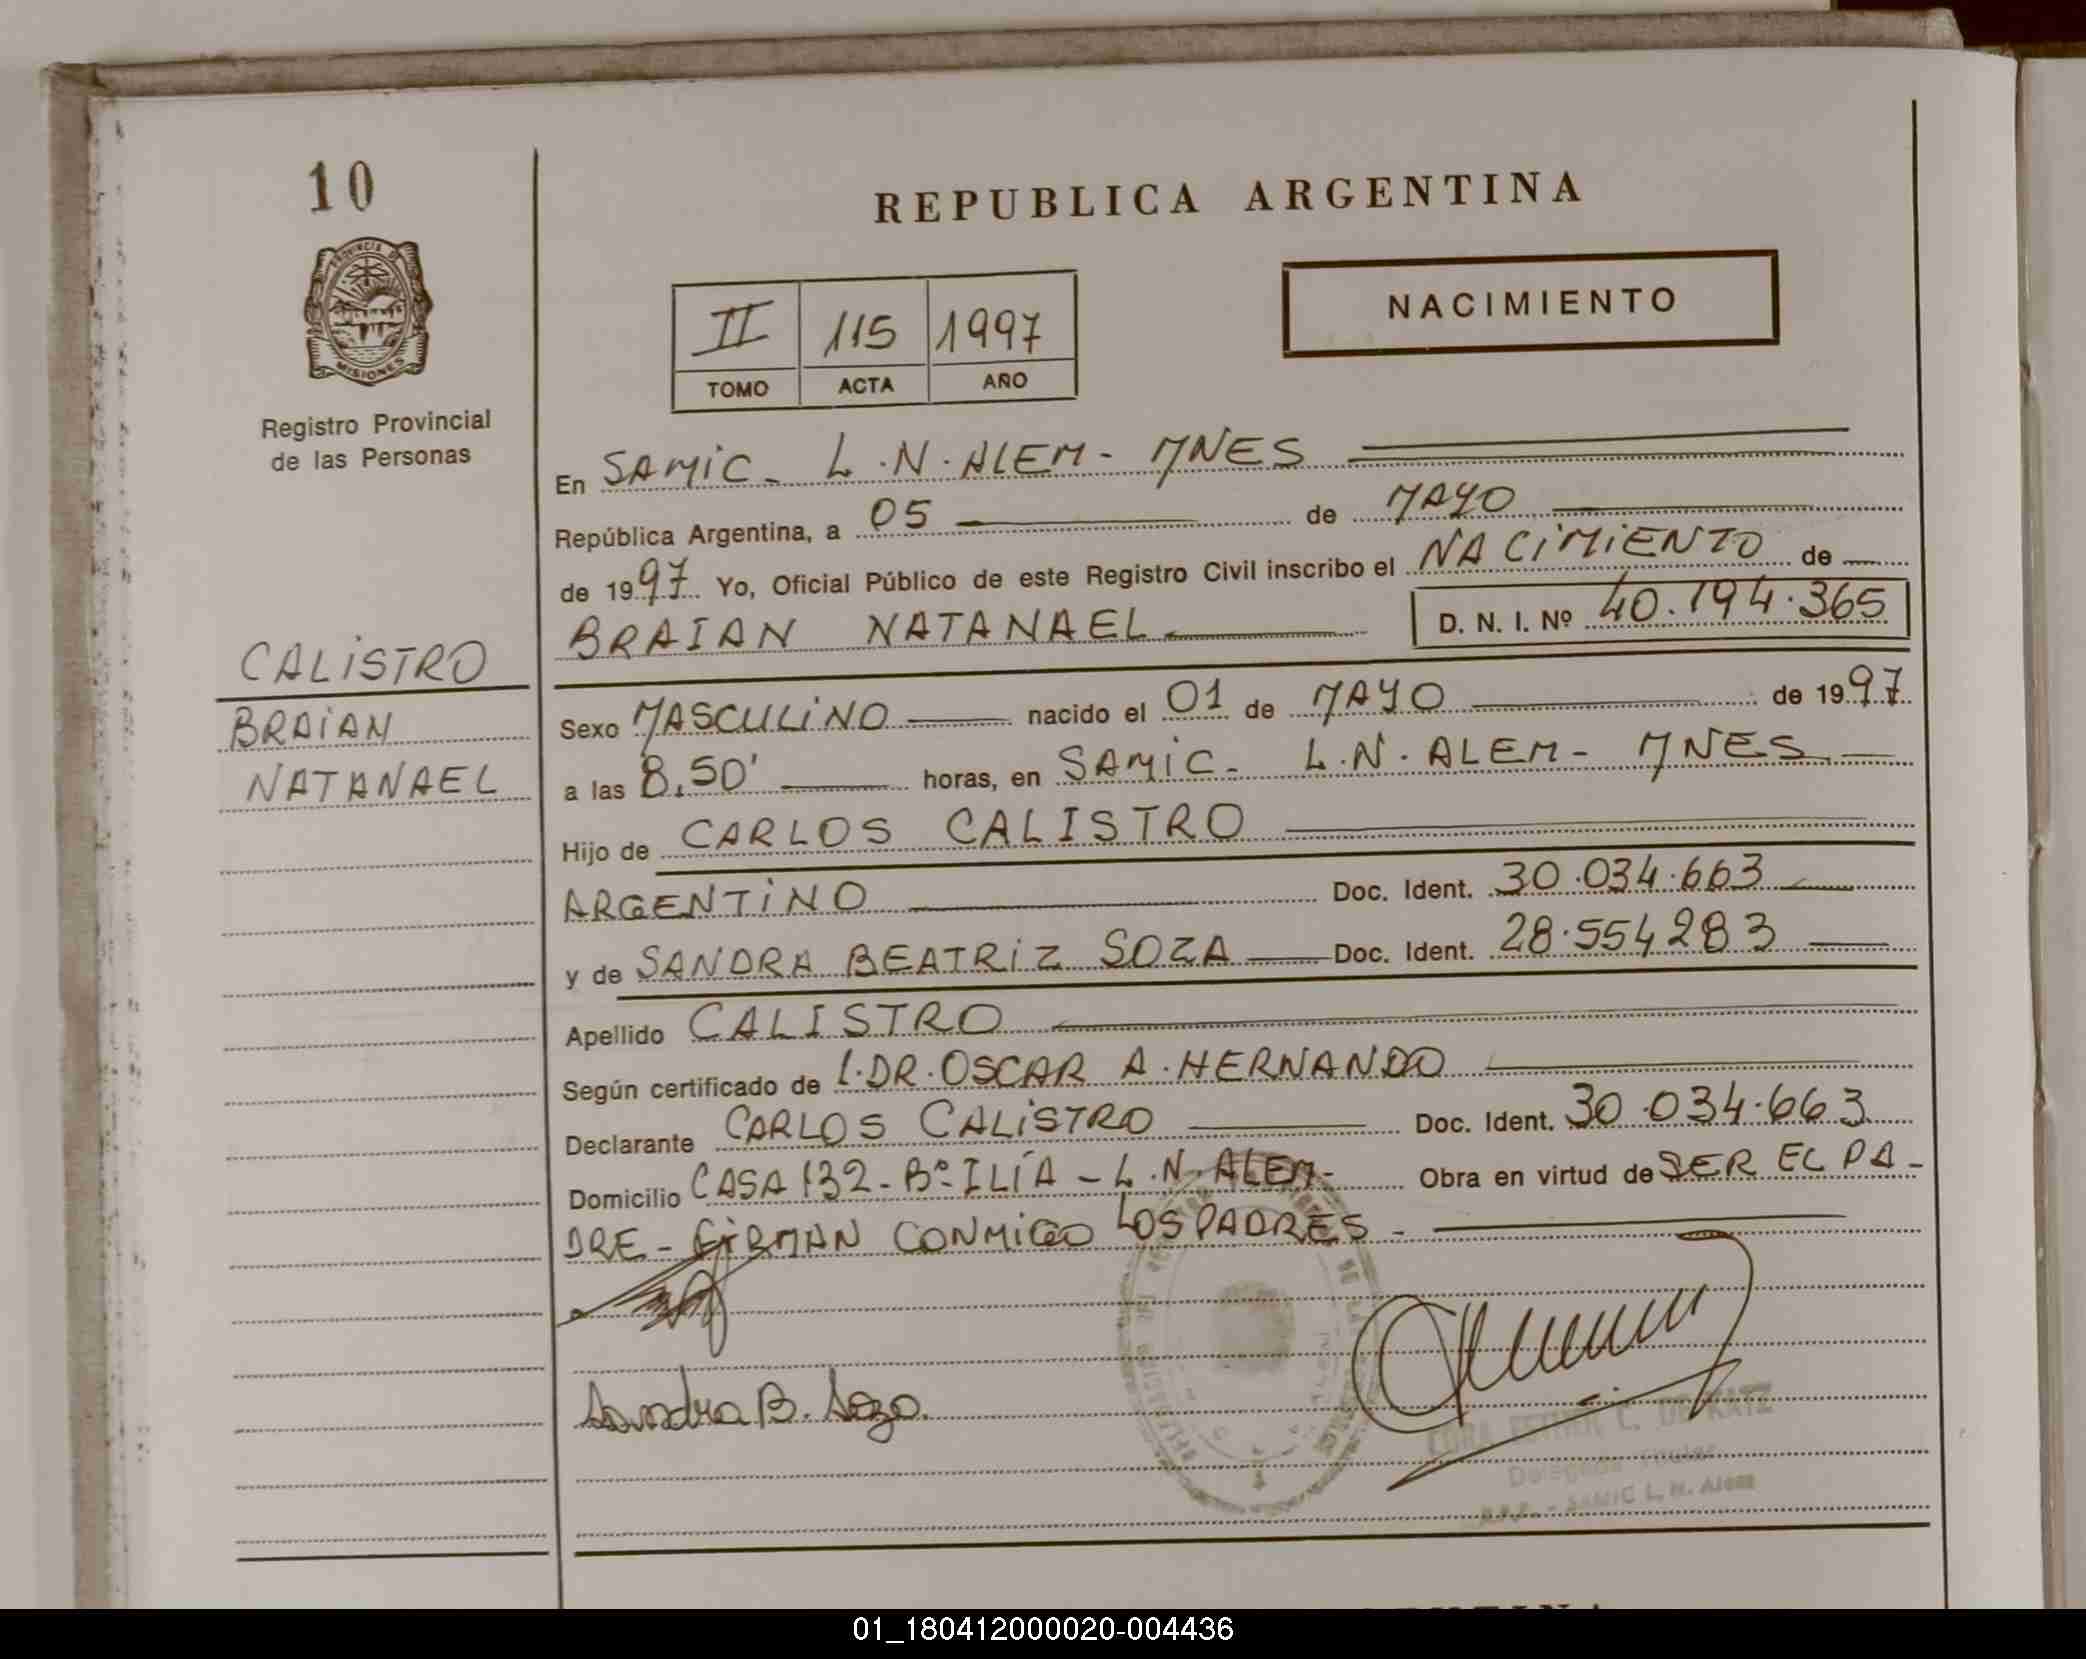 10
REPUBLICA ARGENTINA
PROVINCIA DE
MISIONES
II 115 1997
TOMO ACTA AÑO
NACIMIENTO
Registro Provincial
de las Personas
En SAMIC - L.N. ALEM - MNES
República Argentina, a 05 de MAYO
de 1997 Yo, Oficial Público de este Registro Civil inscribo el NACIMIENTO de
BRAIAN NATANAEL D. N. I. Nº 40.194.365
CALISTRO
BRAIAN
NATANAEL
Sexo MASCULINO nacido el 01 de MAYO de 1997
a las 8,50' horas, en SAMIC - L.N. ALEM - MNES
Hijo de CARLOS CALISTRO
ARGENTINO Doc. Ident. 30.034.663
y de SANDRA BEATRIZ SOZA Doc. Ident. 28.554283
Apellido CALISTRO
Según certificado de DR. OSCAR A. HERNANDO
Declarante CARLOS CALISTRO Doc. Ident. 30.034.663
Domicilio CASA 132 - Bº ILÍA - L.N. ALEM - Obra en virtud de SER EL PA-
DRE - FIRMAN CONMIGO LOS PADRES -
Sandra B. Soza.
ESTHER C. DE KATZ
Delegada Titular
SAMIC L. N. Alem
01_180412000020-004436